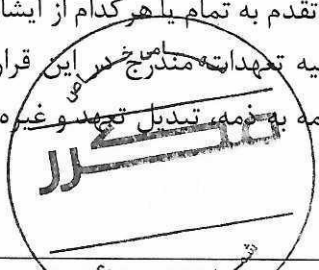 تقدم به تمام یا هر کدام از ایشا
یه تعهدات مندرج در این قرار
مه به ذمه، تبدیل تعهد و غیره
مکرر